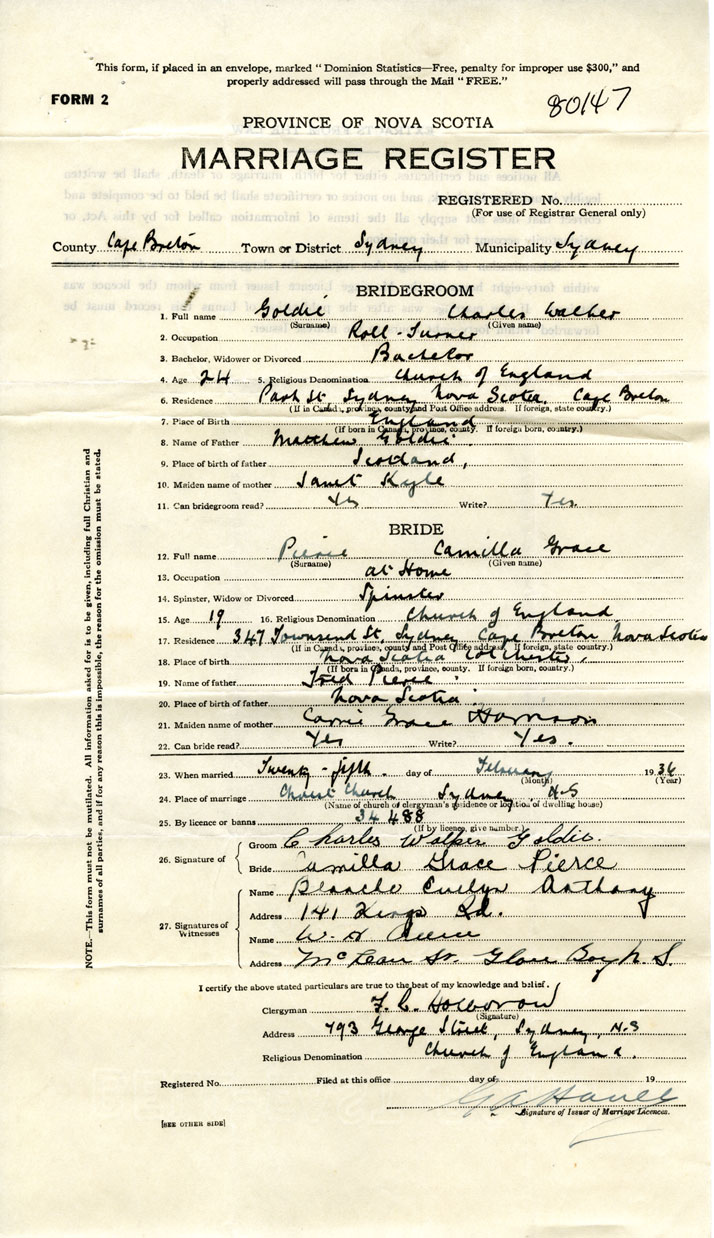 This form, if placed in an envelope, marked "Dominion Statistics—Free, penalty for improper use $300," and
properly addressed will pass through the Mail "FREE."
FORM 2
80147
PROVINCE OF NOVA SCOTIA
MARRIAGE REGISTER
REGISTERED No.
(For use of Registrar General only)
County Cape Breton Town or District Sydney Municipality Sydney
BRIDEGROOM
1. Full name Goldie Charles Walker
(Surname) (Given name)
2. Occupation Roll-Turner
3. Bachelor, Widower or Divorced Bachelor
4. Age 24 5. Religious Denomination Church of England
6. Residence Park St, Sydney Nova Scotia, Cape Breton
(If in Canada, province, county and Post Office address. If foreign, state country.)
7. Place of Birth England
(If born in Canada, province, county. If foreign born, country.)
8. Name of Father Matthew Goldie
9. Place of birth of father Scotland,
10. Maiden name of mother Janet Kyle
11. Can bridegroom read? Yes Write? Yes
BRIDE
12. Full name Pierce Camilla Grace
(Surname) (Given name)
13. Occupation at Home
14. Spinster, Widow or Divorced Spinster
15. Age 19 16. Religious Denomination Church of England
17. Residence 347 Townsend St, Sydney Cape Breton Nova Scotia
(If in Canada, province, county and Post Office address. If foreign, state country.)
18. Place of birth Nova Scotia Colchester.
(If born in Canada, province, county. If foreign born, country.)
19. Name of father Fred Pierce
20. Place of birth of father Nova Scotia
21. Maiden name of mother Carrie Grace Harrison
22. Can bride read? Yes Write? Yes.
23. When married Twenty-fifth. day of February 1936
(Month) (Year)
24. Place of marriage Christ Church Sydney, N.S
(Name of church of clergyman's residence or location of dwelling house)
25. By licence or banns 34488
(If by licence, give number)
26. Signature of
Groom Charles Walker Goldie.
Bride Camilla Grace Pierce
27. Signatures of Witnesses
Name Blanche Evelyn Anthony
Address 141 Kings Rd.
Name W. A
Address McLean St. Glace Bay N.S.
I certify the above stated particulars are true to the best of my knowledge and belief.
Clergyman F. C. Holborow
(Signature)
Address 793 George Street, Sydney, N.S
Religious Denomination Church of England.
Registered No. Filed at this office day of 19
Signature of Issuer of Marriage Licences.
[SEE OTHER SIDE]
NOTE.—This form must not be mutilated. All information asked for is to be given, including full Christian and
surnames of all parties, and if for any reason this is impossible, the reason for the omission must be stated.